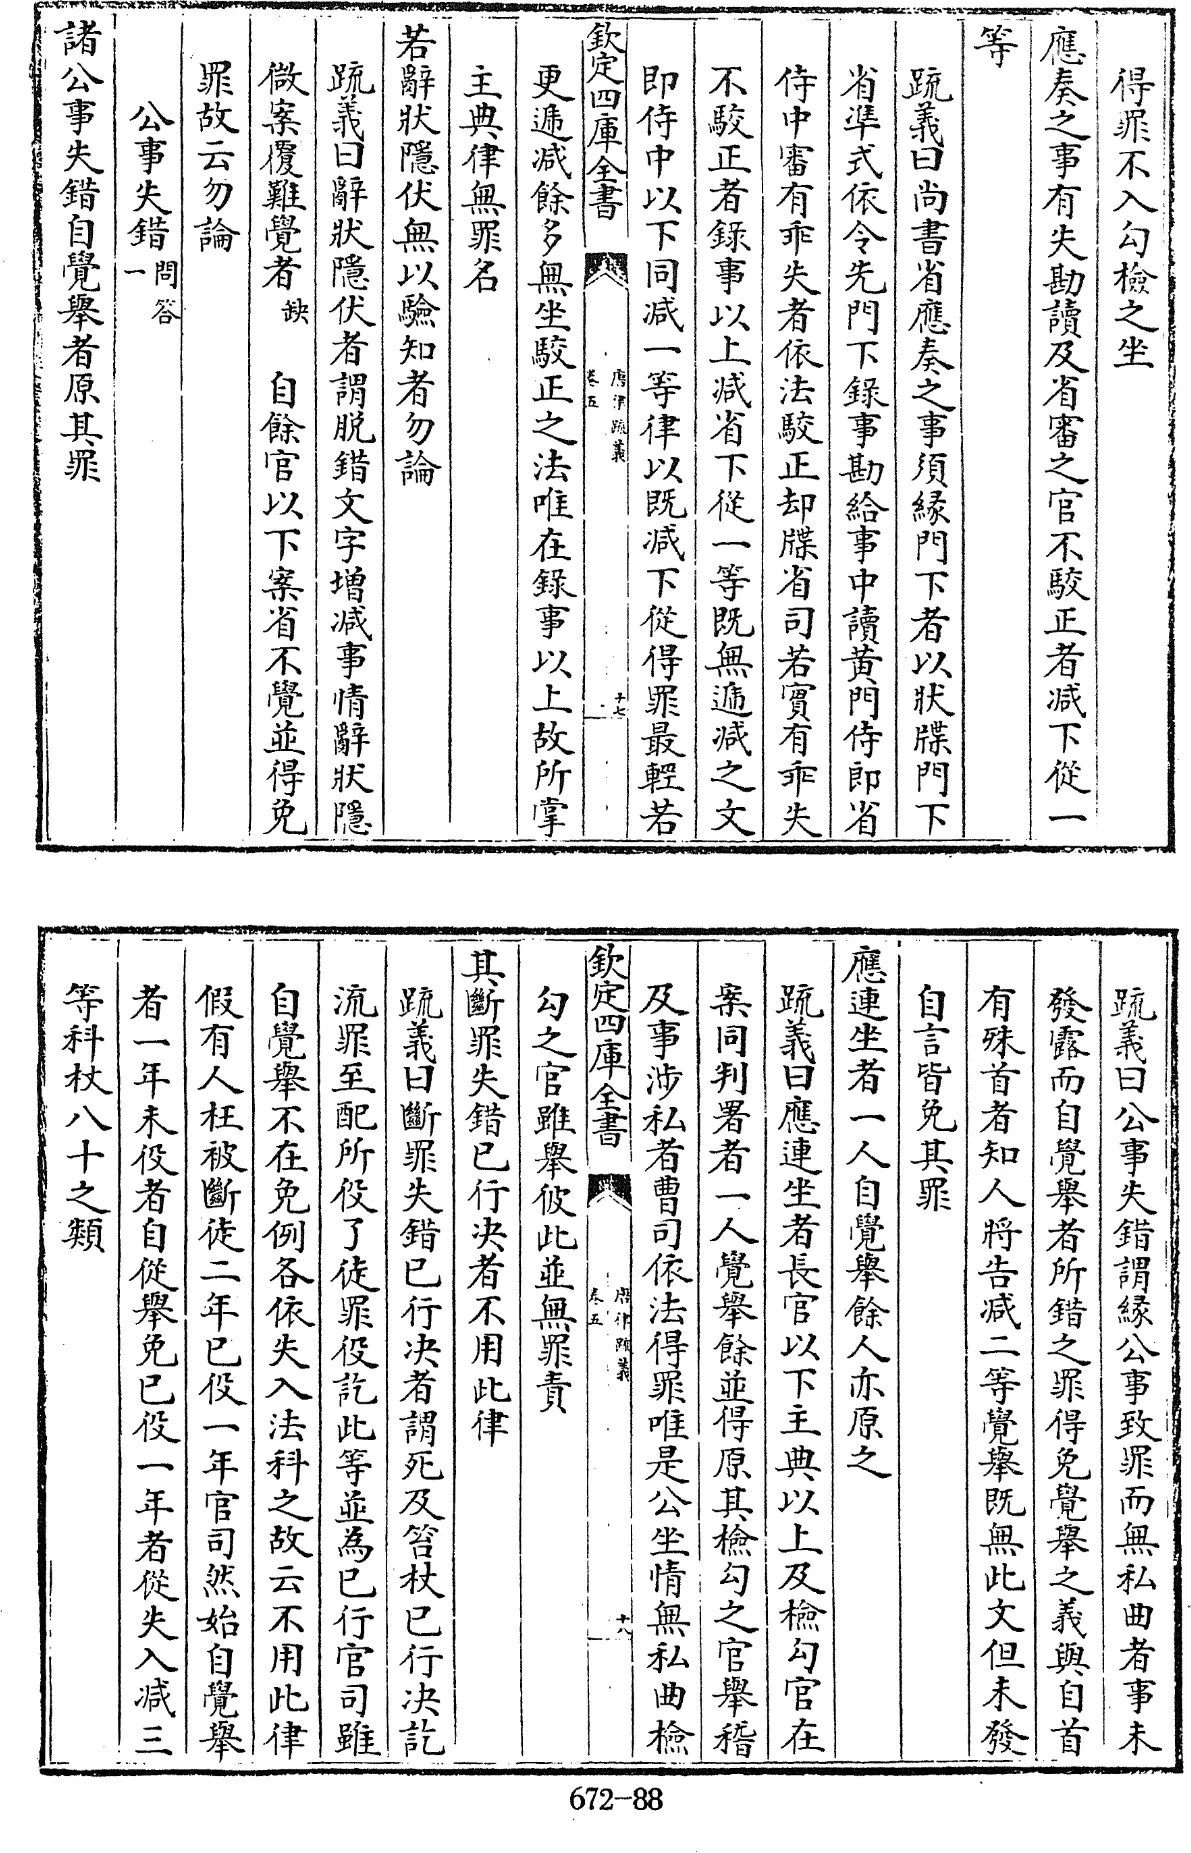 得罪不入勾檢之坐
應奏之事有失勘讀及省審之官不駮正者減下從一
等
疏義曰尚書省應奏之事須緣門下者以狀牒門下
省準式依令先門下錄事勘給事中讀黄門侍郎省
侍中審有乖失者依法駮正却牒省司若實有乖失
不駮正者錄事以上減省下從一等既無遞減之文
即侍中以下同減一等律以既減下從得罪最輕若
欽定四庫全書
唐律疏義
卷五
十七
更遞減餘多無坐駮正之法唯在錄事以上故所掌
主典律無罪名
若辭狀隱伏無以驗知者勿論
疏義曰辭狀隱伏者謂脱錯文字增減事情辭狀隱
微案覆難覺者 缺 自餘官以下案省不覺並得免
罪故云勿論
公事失錯 問答一
諸公事失錯自覺舉者原其罪
疏義曰公事失錯謂緣公事致罪而無私曲者事未
發露而自覺舉者所錯之罪得免覺舉之義與自首
有殊首者知人將告減二等覺舉既無此文但未發
自言皆免其罪
應連坐者一人自覺舉餘人亦原之
疏義曰應連坐者長官以下主典以上及檢勾官在
案同判署者一人覺舉餘並得原其檢勾之官舉稽
及事涉私者曹司依法得罪唯是公坐情無私曲檢
欽定四庫全書
唐律疏義
卷五
十八
勾之官雖舉彼此並無罪責
其斷罪失錯已行決者不用此律
疏義曰斷罪失錯已行決者謂死及笞杖已行決訖
流罪至配所役了徒罪役訖此等並為已行官司雖
自覺舉不在免例各依失入法科之故云不用此律
假有人枉被斷徒二年已役一年官司然始自覺舉
者一年未役者自從舉免已役一年者從失入減三
等科杖八十之類
672-88